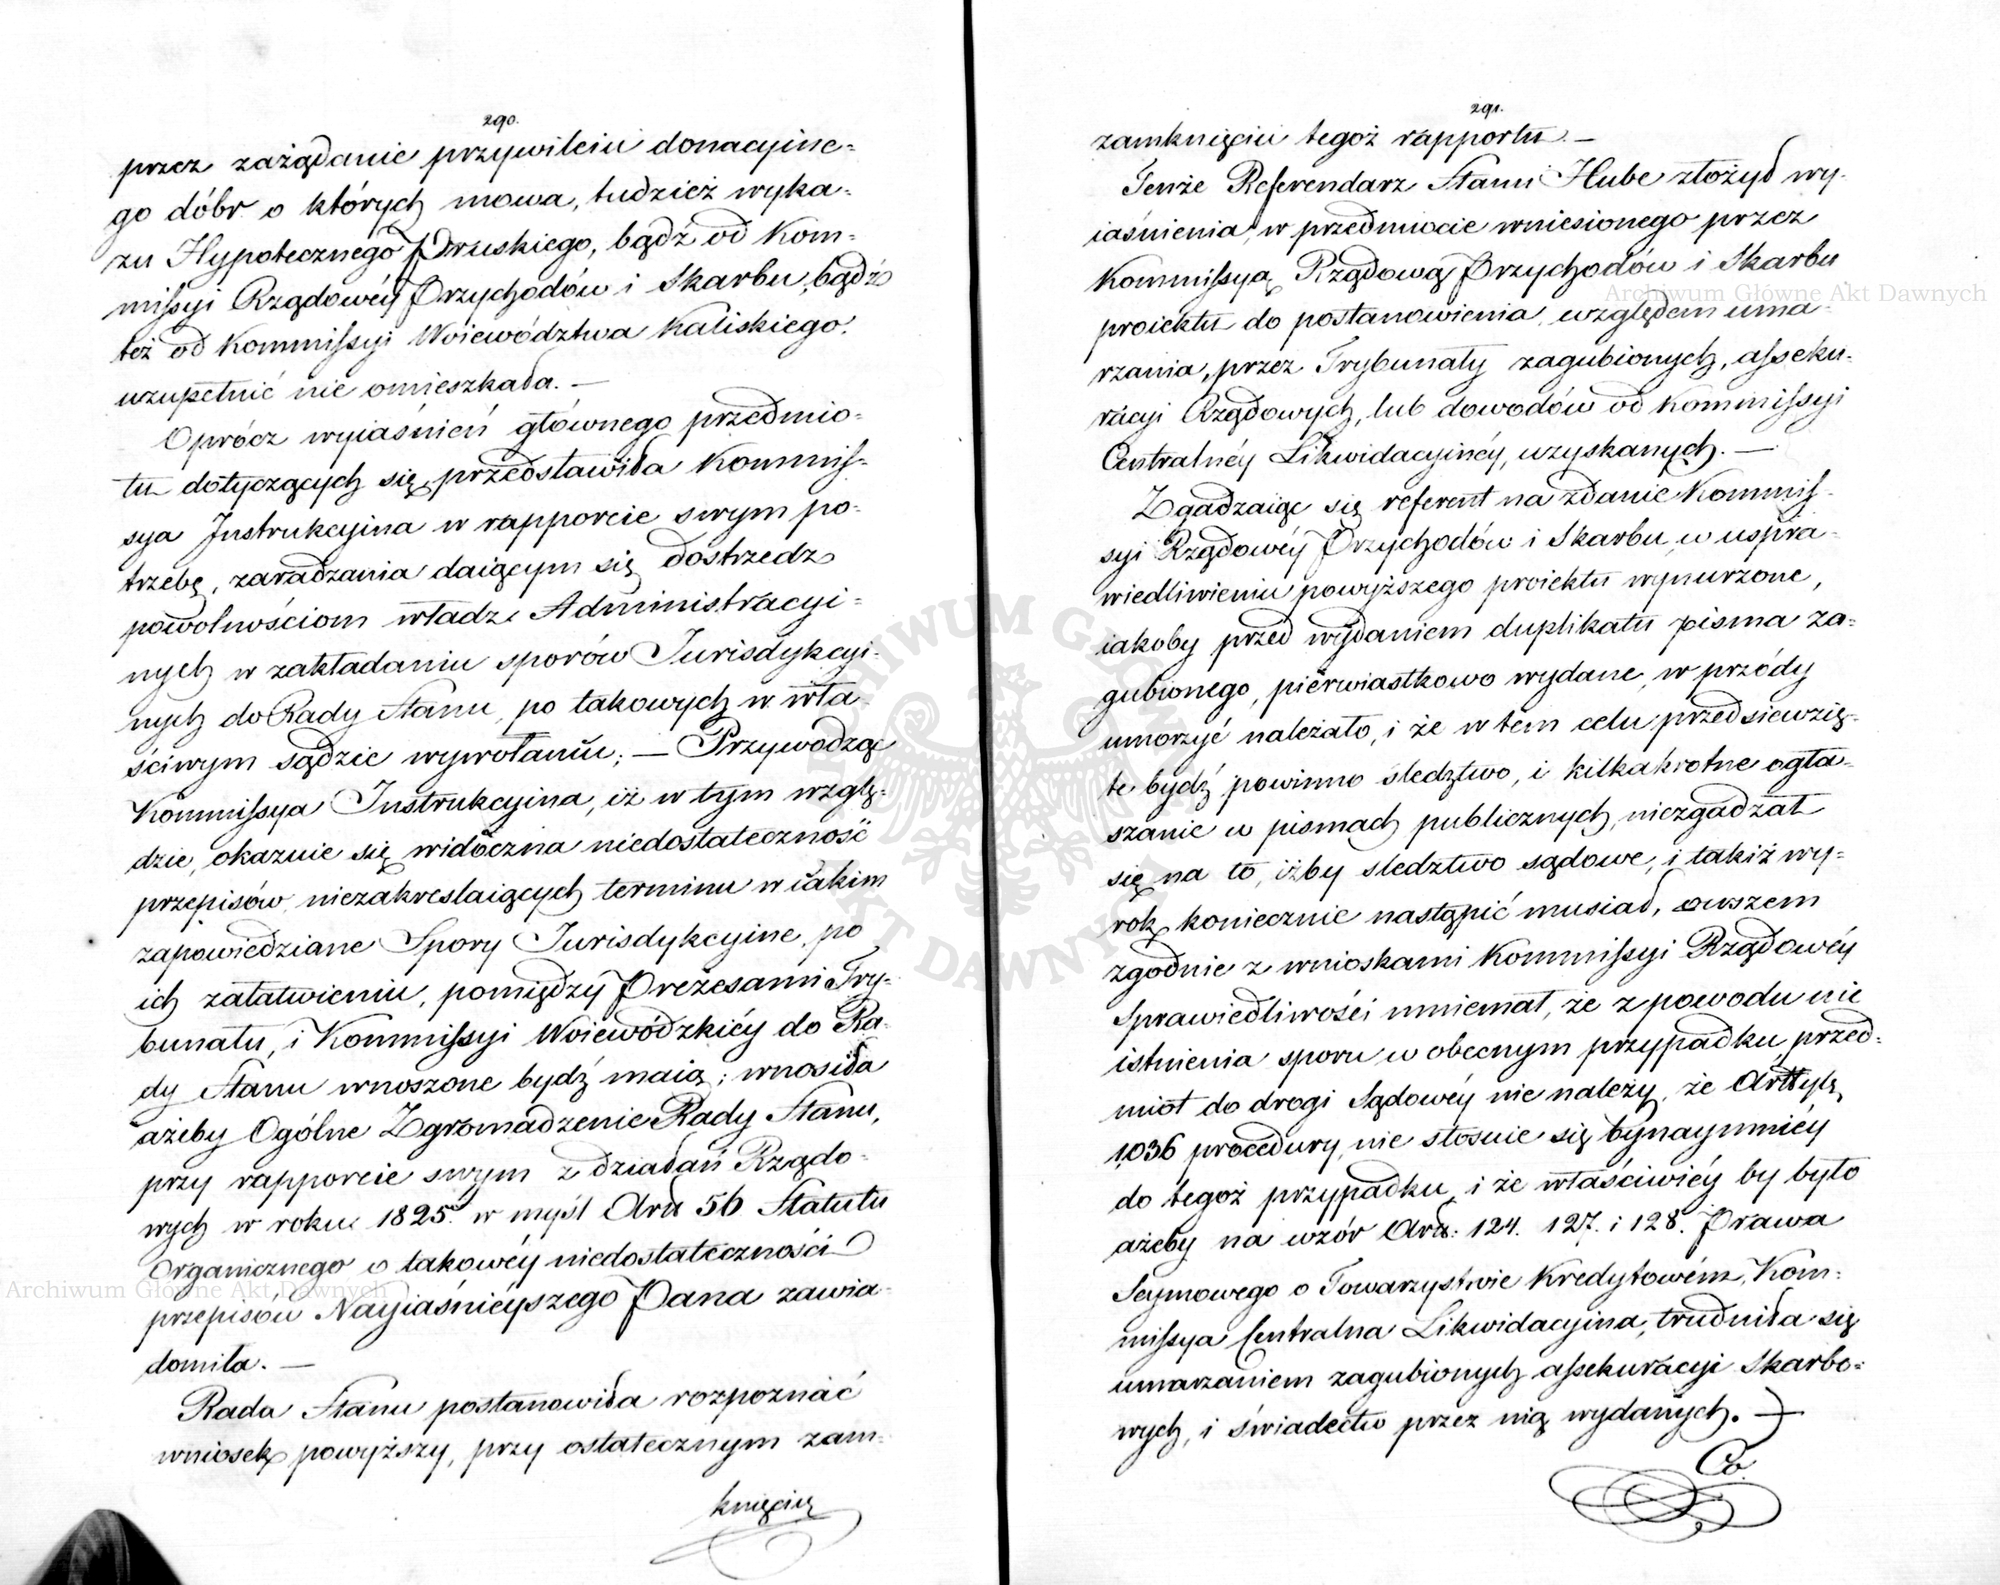 290.
przez zażądanie przywileiu donacyine-
go dóbr o których mowa, tudzież wyka-
zu Hypotecznego Pruskiego, bądź od Kom-
missyi Rządowéy Przychodów i Skarbu, bądź
też od Kommissyi Woiewództwa Kaliskiego.
uzupełnić nie omieszkała. —
Oprócz wyiaśnień głównego przedmio-
tu dotyczących się, przedstawiła Kommis-
sya Instrukcyina w rapporcie swym po-
trzebę, zaradzania daiącym się dostrzedz
powolnościom władz Administracyi-
nych w zakładaniu sporów Jurisdykcyi-
nych do Rady Stanu, po takowych w wła-
ściwym sądzie wywołaniu; — Przywodząc
Kommissya Instrukcyina, iż w tym wzglę-
dzie, okazuie się widoczna niedostateczność
przepisów, niezakreslaiących terminu w iakim
zapowiedziane Spory Jurisdykcyine, po
ich załatwieniu, pomiędzy Prezesami Try-
bunału, i Kommissyi Woiewódzkiéy do Ra-
dy Stanu wnoszone bydź maią; wnosiła
ażeby Ogólne Zgromadzenie Rady Stanu,
przy rapporcie swym z działań Rządo-
wych w roku 1825. w myśl Art 56 Statutu
Organicznego o takowéy niedostateczności
przepisów Nayiaśnieyszego Pana zawia-
domiła. —
Rada Stanu postanowiła rozpoznać
wniosek powyższy, przy ostatecznym zam-
knięciu
291.
zamknięciu tegoż rapportu. —
Tenże Referendarz Stanu Hube złożył wy-
iaśnienia, w przedmiocie wniesionego przez
Kommissyą Rządową Przychodów i Skarbu
proiektu do postanowienia względem uma-
rzania, przez Trybunały zagubionych, asseku-
racyi Rządowych, lub dowodów od Kommissyi
Centralnéy Likwidacyinéy, uzyskanych. —
Zgadzaiąc się referent na zdanie Kommis-
syi Rządowéy Przychodów i Skarbu, w uspra-
wiedliwieniu powyższego proiektu wynurzone,
iakoby przed wydaniem duplikatu pisma za-
gubionego, pierwiastkowo wydane, w przódy
umorzyć należało, i że w tem celu przedsiewzię-
te bydź powinno sledztwo, i kilkakrotne ogła-
szanie w pismach publicznych, niezgadzał
się na to, iżby sledztwo sądowe, i takiż wy-
rok, koniecznie nastąpić musiał, owszem
zgodnie z wnioskami Kommissyi Rządowéy
Sprawiedliwości mniemał, że z powodu nie
istnienia sporu w obecnym przypadku, przed-
miot do drogi Sądowéy nie należy, że Artkył
1036 procedury, nie stosuie się bynaymniéy
do tegoż przypadku, i że właściwiéy by było
ażeby na wzór Art: 124. 127. i 128. Prawa
Seymowego o Towarzystwie Kredytowém, Kom-
missya Centralna Likwidacyina, trudniła się
umarzaniem zagubionych assekuracyi Skarbo-
wych, i świadectw przez nią wydanych. —
Co
Archiwum Główne Akt Dawnych
Archiwum Główne Akt Dawnych
ARCHIWUM GŁÓWNE
AKT DAWNYCH